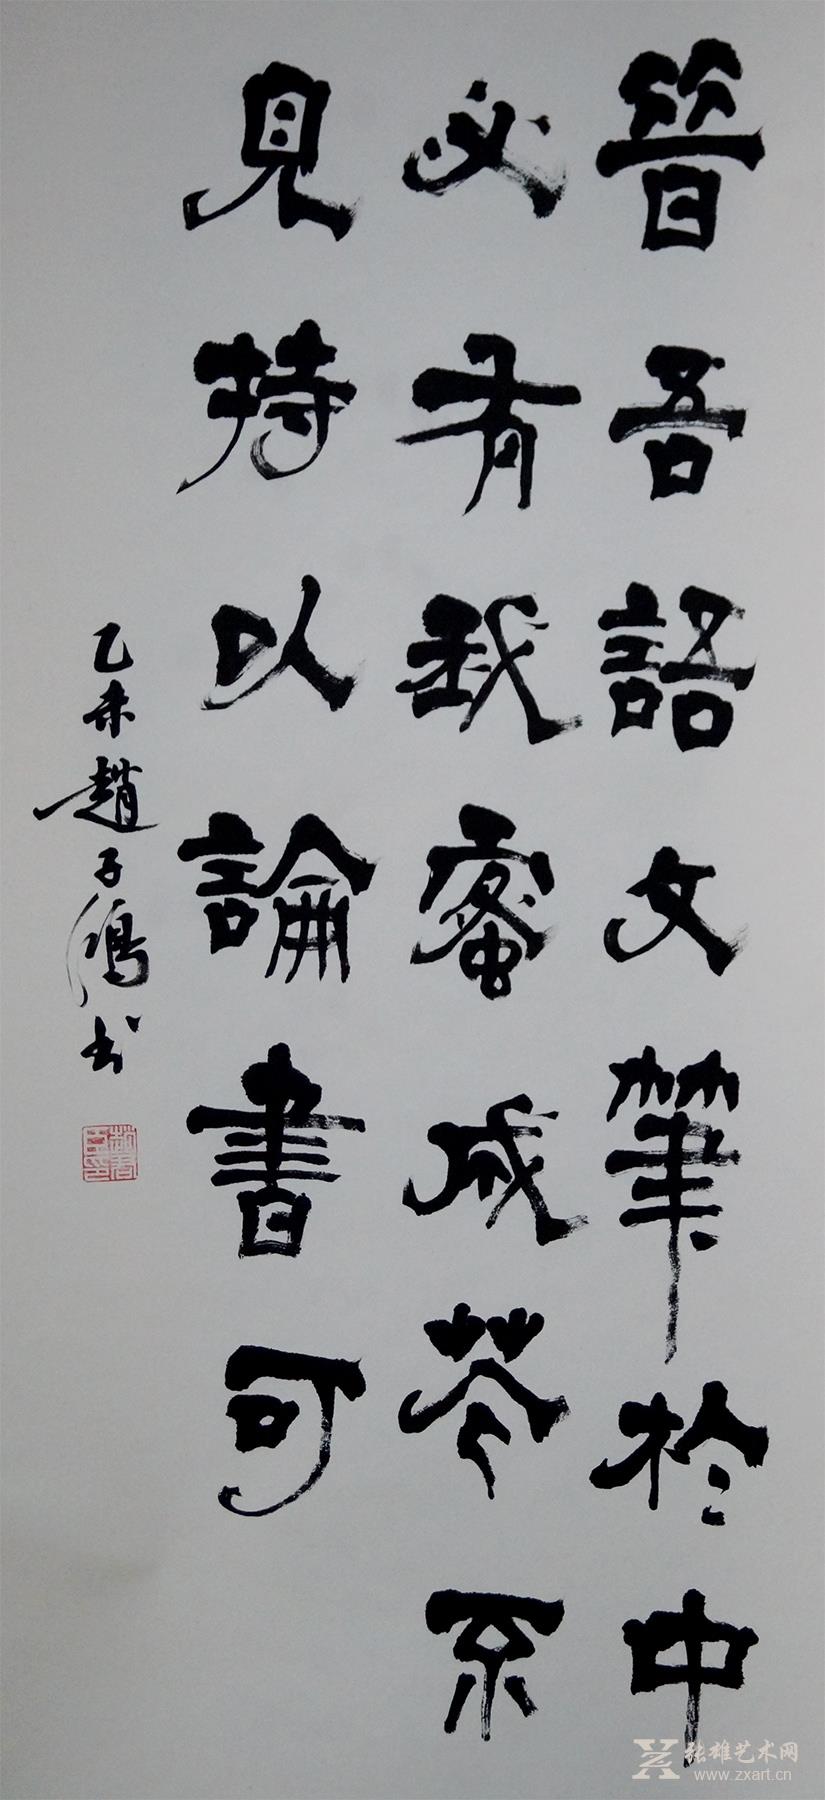 晉吾語文筆於中
必有我蜜成花不
見持以論書可
乙未趙子鴻书
张雄艺术网
www.zxart.cn